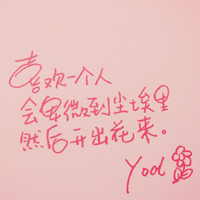 喜欢一个人
会卑微到尘埃里
然后开出花来。
Yool